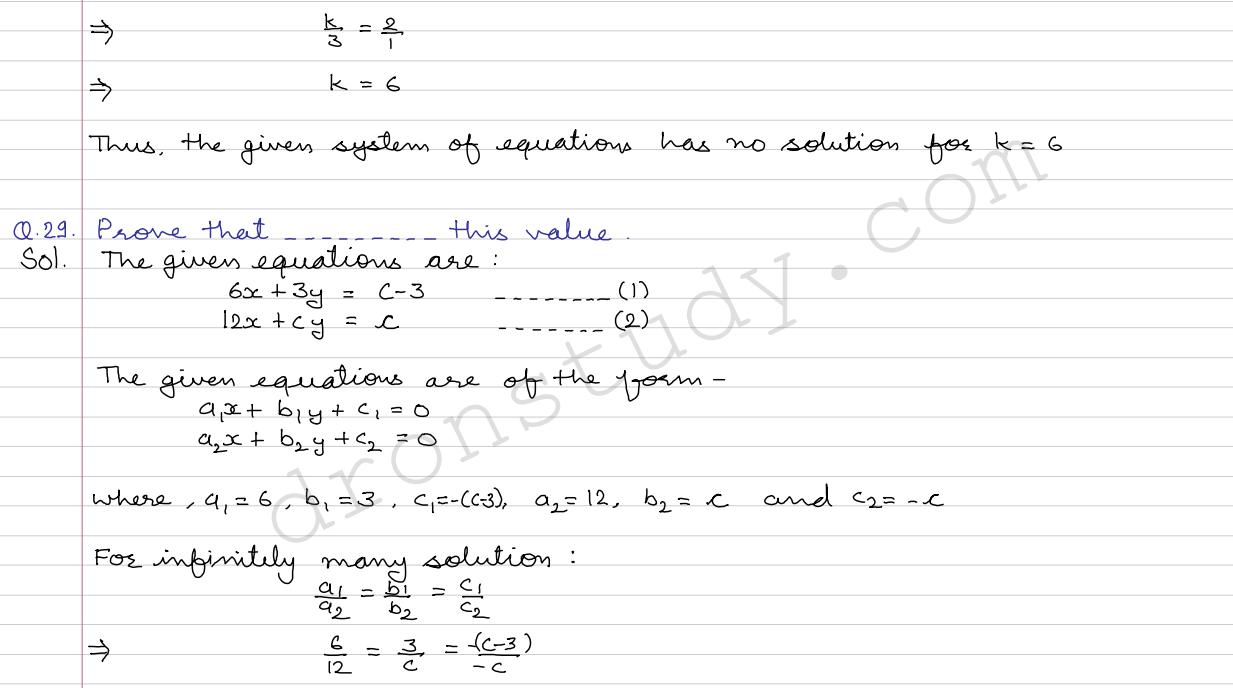 ⇒ k/3 = 2/1
⇒ k = 6
Thus, the given system of equations has no solution for k = 6
Q.29. Prove that _________ this value.
Sol. The given equations are :
6x + 3y = c-3 ________ (1)
12x + cy = c _______ (2)
The given equations are of the form -
a₁x + b₁y + c₁ = 0
a₂x + b₂y + c₂ = 0
where, a₁ = 6, b₁ = 3, c₁=-(c-3), a₂ = 12, b₂ = c and c₂ = -c
For infinitely many solution :
a₁/a₂ = b₁/b₂ = c₁/c₂
⇒ 6/12 = 3/c = -(c-3)/-c
dronstudy.com